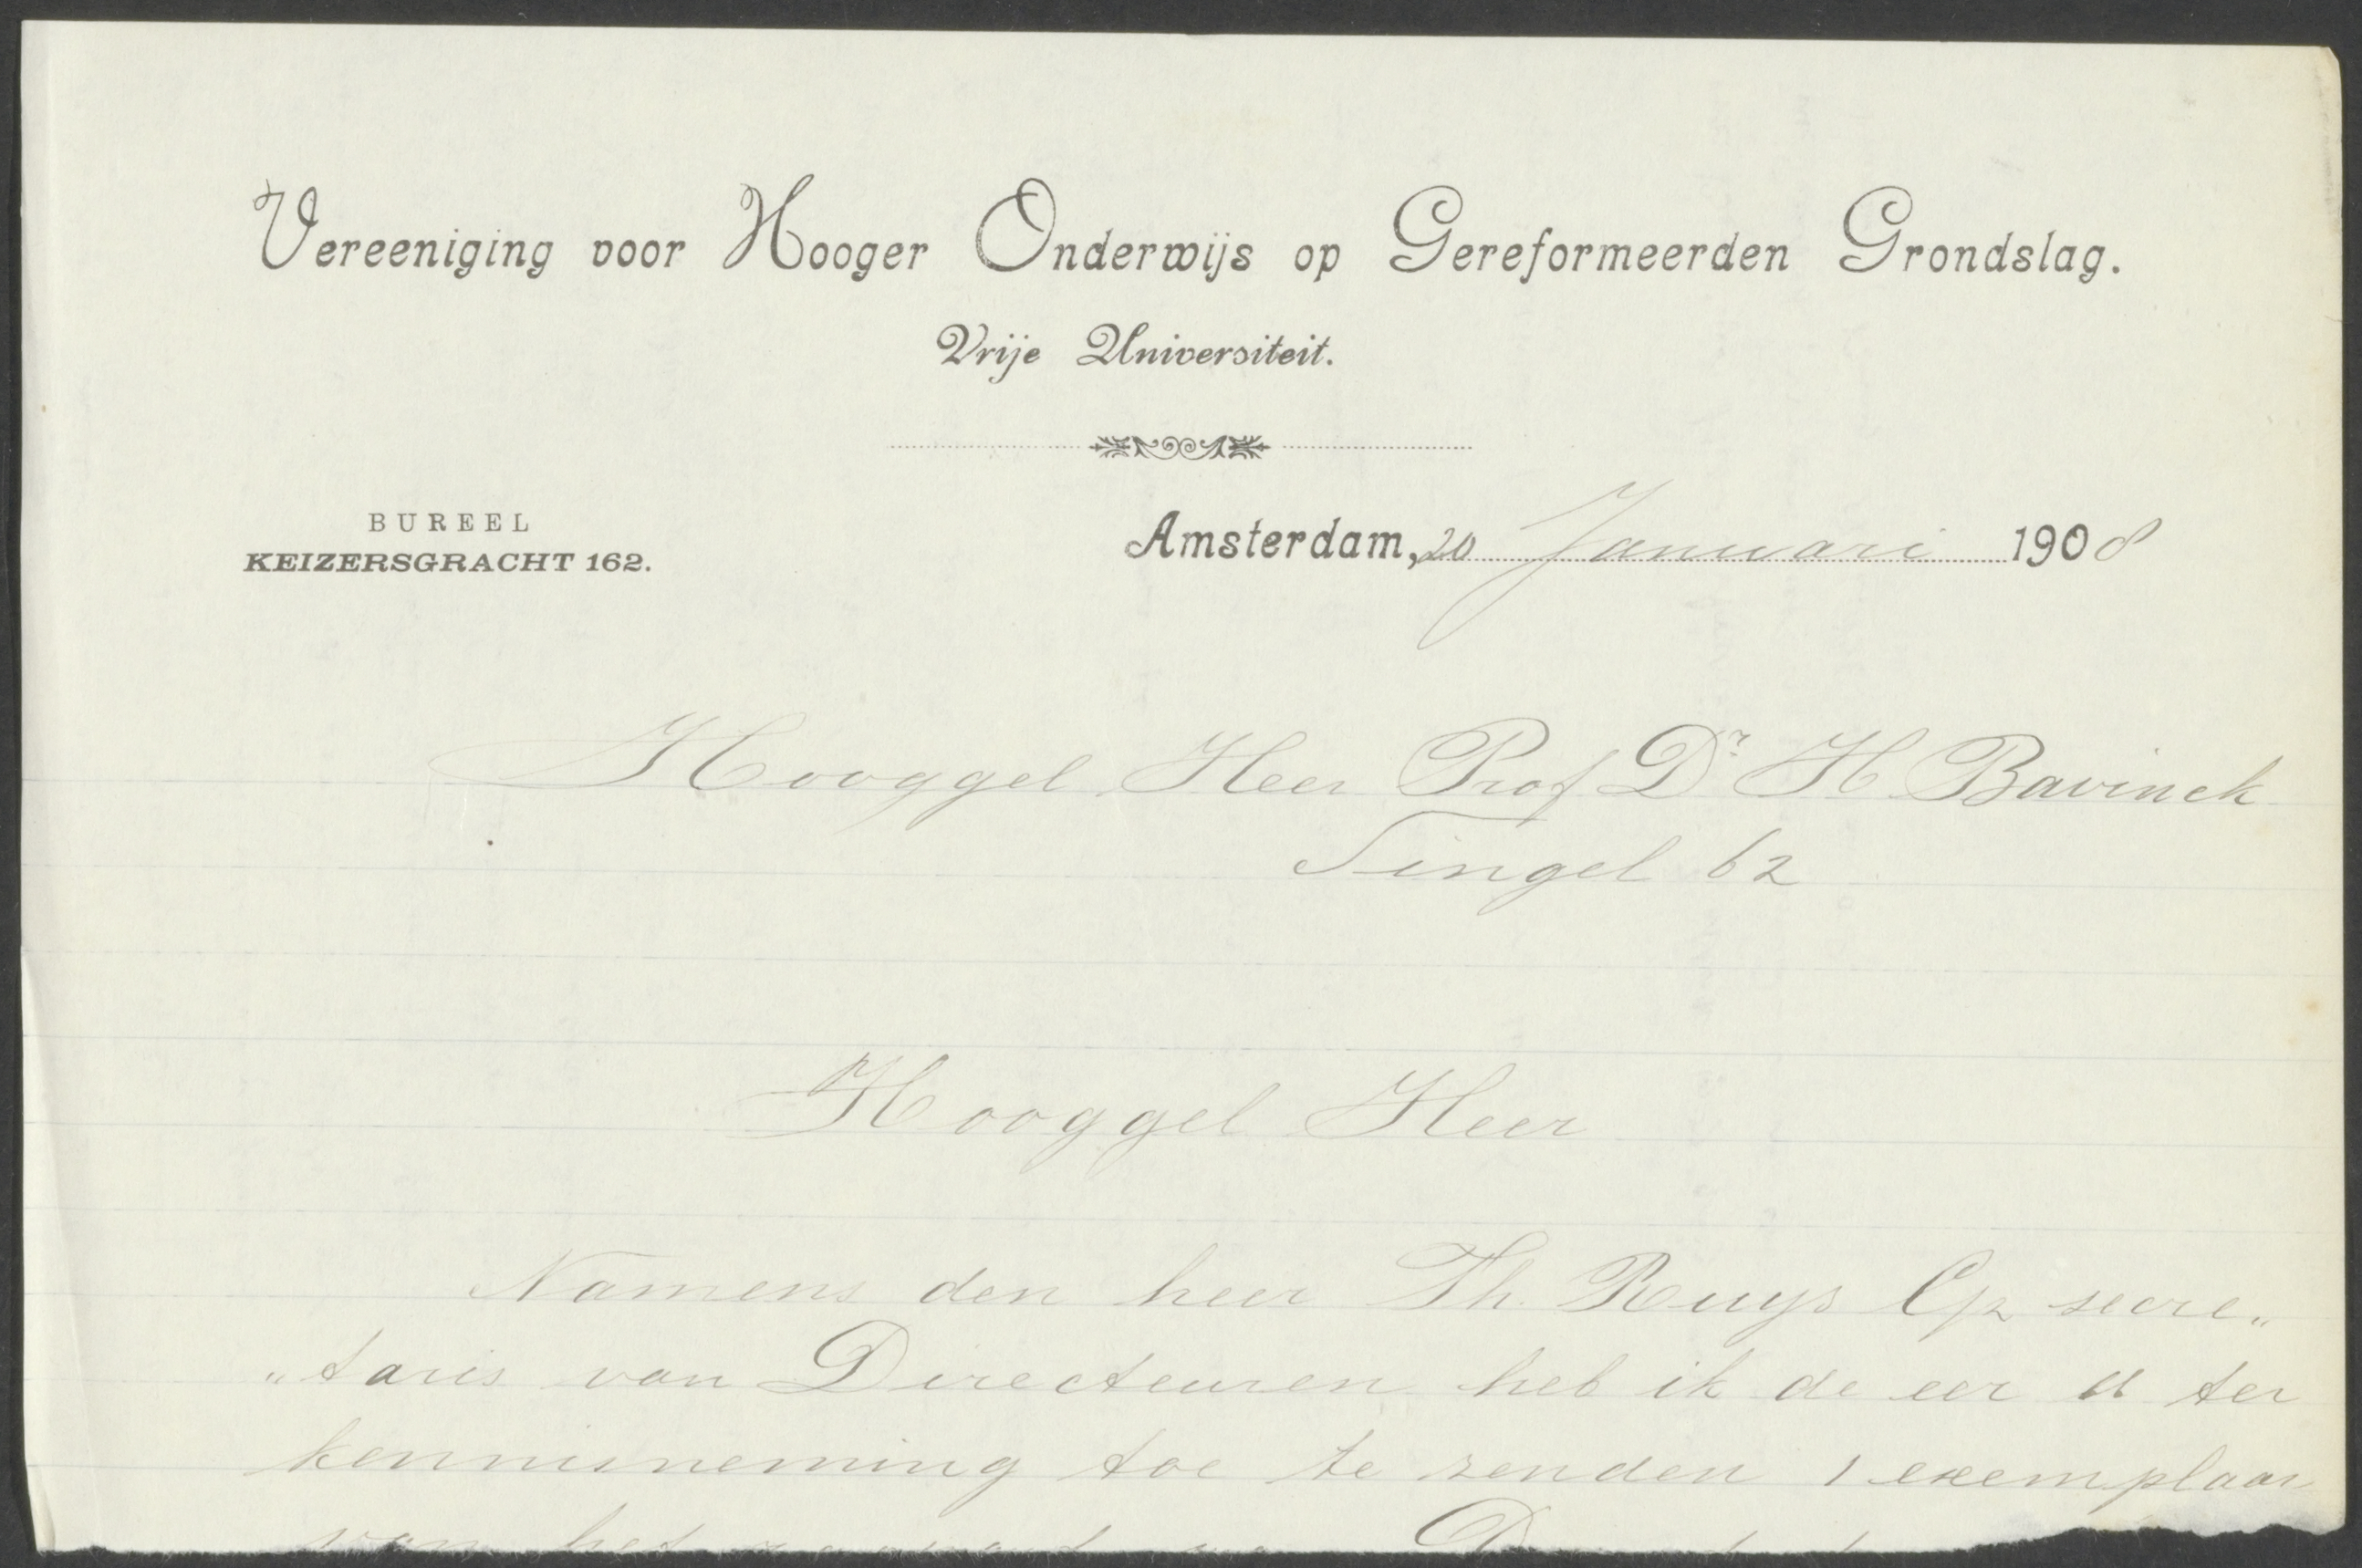 Vereeniging voor Hooger Onderwijs op Gereformeerden Grondslag.
Vrije Universiteit.
BUREEL
KEIZERSGRACHT 162.
Amsterdam, 20 Januari 1908
Hooggel Heer Prof Dr H Bavinck
Singel 62
Hooggel Heer
Namens den heer Th. Ruys Gz secre„
„taris van Directeuren heb ik de eer U ter
kennisneming toe te zenden 1 exemplaar
van het